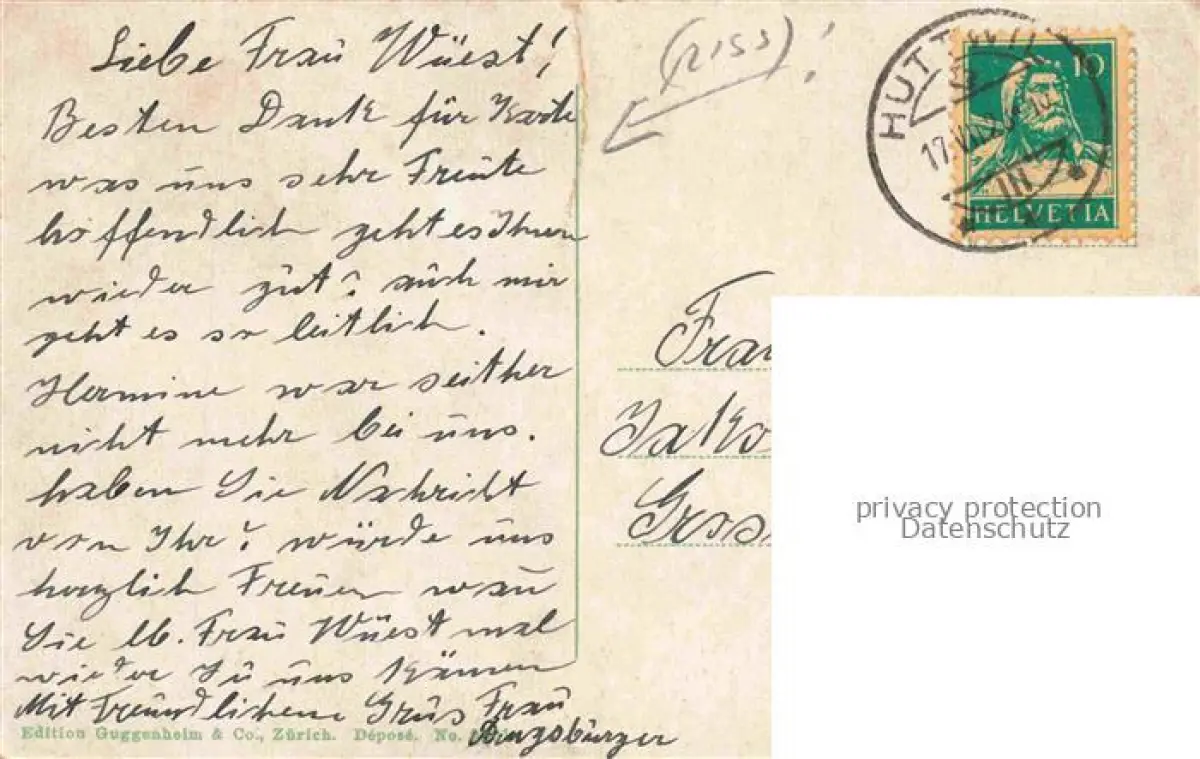 Liebe Frau Wüest!
Besten Dank für Karte
was uns sehr Freute
hoffendlich geht es Ihnen
wieder gut? auch mir
geht es so leitlich.
Hermine war seither
nicht mehr bei uns.
haben Sie Nachricht
von Ihr? würde uns
herzlich Freuen wän
Sie lb. Frau Wüest mal
wieder zu uns kämen
Mit Freundlichem Grüs Frau
Edition Guggenheim & Co., Zürich. Déposé. No.
(RISS)!
HUTTWIL
17.VII.2
10
HELVETIA
Frau
Jako
Gross
privacy protection
Datenschutz